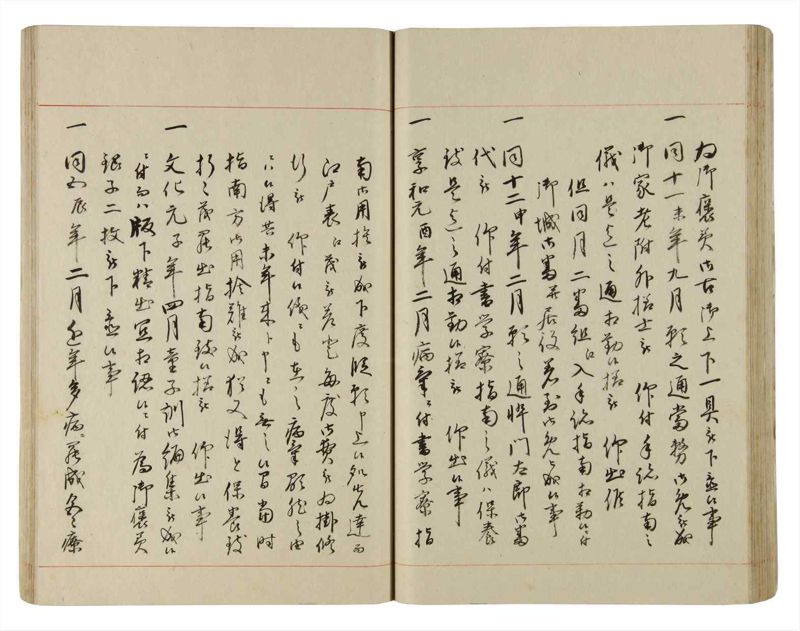 為御褒美御古御上下一具被下置候事
一 同十一未年九月願之通当務御免被成
御家老附外様士被 仰付手跡指南之
儀ハ是迄之通相勤候様被 仰出候
但同月二番組江入手跡指南相勤候付
御城御番并居役者御免被成候事
一 同十二申年二月願之通悴門左郎御番
代被 仰付書学寮指南之儀ハ保養
致是迄之通相勤候様被 仰出候事
一 享和元酉年二月病気ニ付書学寮指
南御用捨被成下度段願申上候処先達而
江戸表江茂被差登毎度御賞被為掛候
被 仰付候儀ニも有之病気
候得共未年来申も無之候間当時
指南方御用捨難被成猶又得と保養致
折々茂罷出指南致候様被 仰出候事
一 文化元子年四月童子訓御編集被成候
ニ付而ハ版下精出宜相認候ニ付為御褒美
銀子二枚被下置候事
一 同五辰年二月近年多病ニ罷成書寮